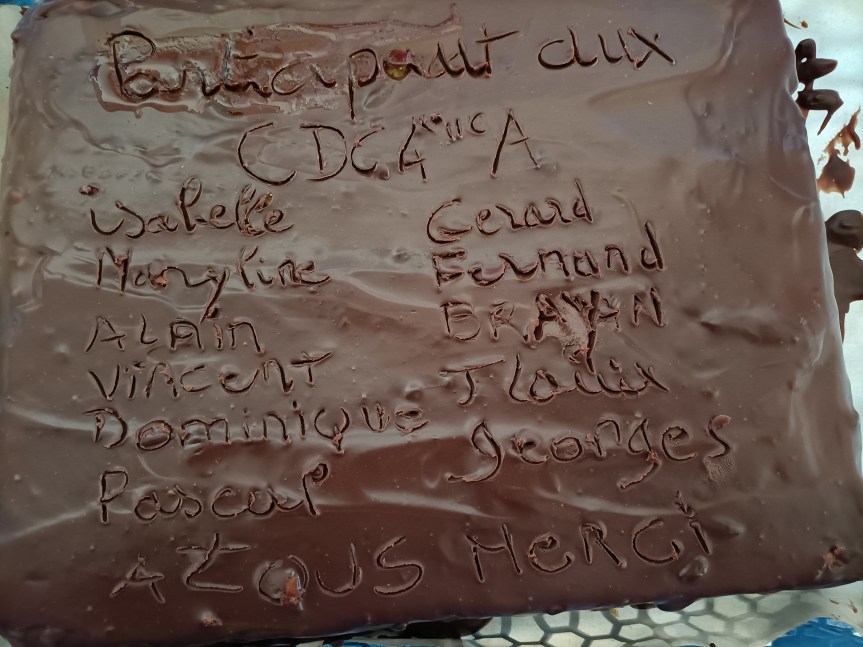 Participant aux
CDC 4ème A
isabelle Gerard
Maryline Fernand
ALAin BRAYAN
VINCENT
Dominique georges
Pascal
A tOUS MeRCi